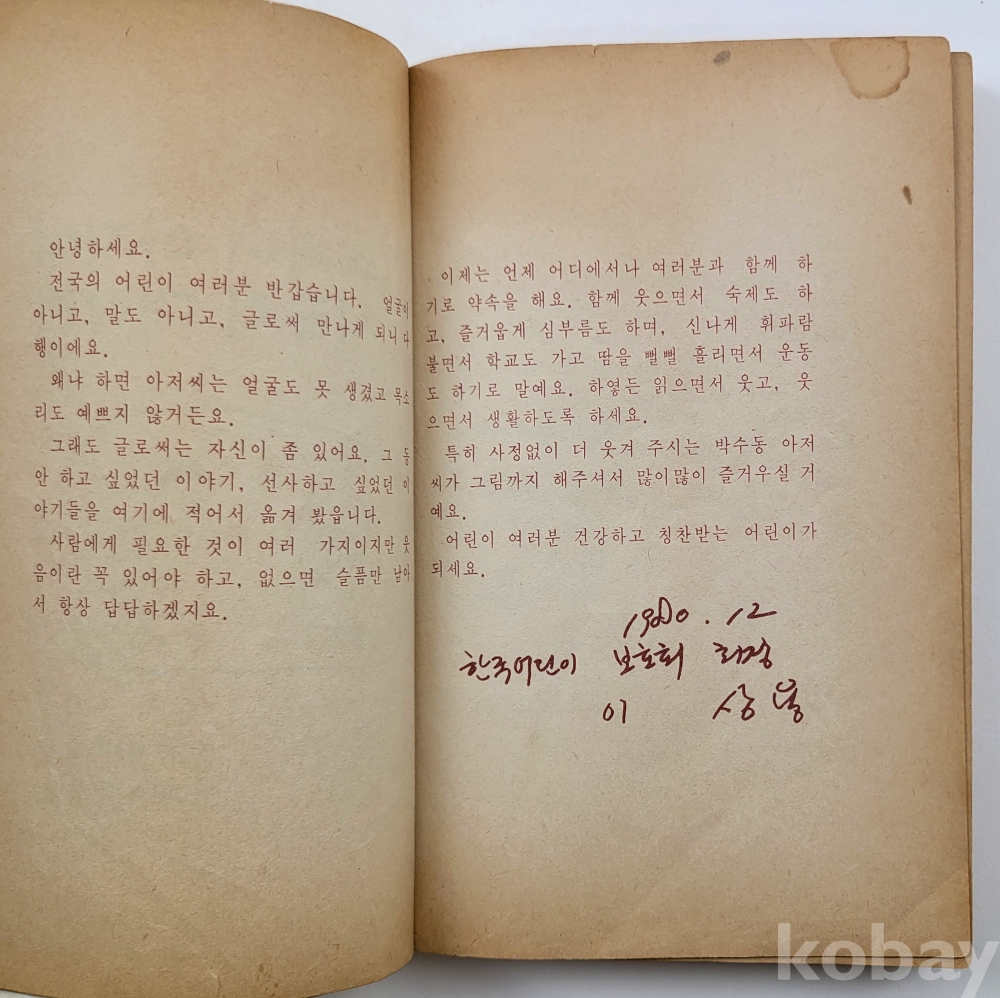 안녕하세요.
전국의 어린이 여러분 반갑습니다. 얼굴이
아니고, 말도 아니고, 글로써 만나게 되니 다
행이에요.
왜냐 하면 아저씨는 얼굴도 못 생겼고 목소
리도 예쁘지 않거든요.
그래도 글로써는 자신이 좀 있어요. 그 동
안 하고 싶었던 이야기, 선사하고 싶었던 이
야기들을 여기에 적어서 옮겨 봤읍니다.
사람에게 필요한 것이 여러 가지이지만 웃
음이란 꼭 있어야 하고, 없으면 슬픔만 남아
서 항상 답답하겠지요.
이제는 언제 어디에서나 여러분과 함께 하
기로 약속을 해요. 함께 웃으면서 숙제도 하
고, 즐거웁게 심부름도 하며, 신나게 휘파람
불면서 학교도 가고 땀을 뻘뻘 흘리면서 운동
도 하기로 말예요. 하옇든 읽으면서 웃고, 웃
으면서 생활하도록 하세요.
특히 사정없이 더 웃겨 주시는 박수동 아저
씨가 그림까지 해주셔서 많이많이 즐거우실 거
예요.
어린이 여러분 건강하고 칭찬받는 어린이가
되세요.
1980. 12
한국어린이 보호회 회장
이 상용
kobay